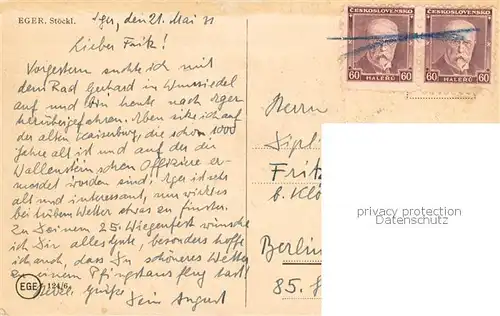 EGER, Stöckl.
Eger, den 21. Mai 31
Lieber Fritz!
Vorgestern suchte ich mit
dem Rad Gerhard in Wunsiedel
auf und bin heute nach Eger
herübergefahren. Eben sitze ich auf
der alten Kaiserburg, die schon 1000
Jahre alt ist und auf der die
Wallensteinschen Offiziere er-
mordet worden sind. Eger ist sehr
alt und interessant, nur wirkt es
bei trüben Wetter etwas zu finster.
Zu Deinem 25. Wiegenfest wünsche
ich Dir alles Gute, besonders hoffe
ich auch, dass Du schöneres Wetter
zu einem Pfingstausflug hast!
Viele Grüße
Dein August
EGE 124/6
ČESKOSLOVENSKO ČESKOSLOVENSKO
60 HALÉŘŮ 60 60 HALÉŘŮ 60
Herrn
Dipl
Fritz
b. Klö
Berlin
85. 
privacy protection
Datenschutz